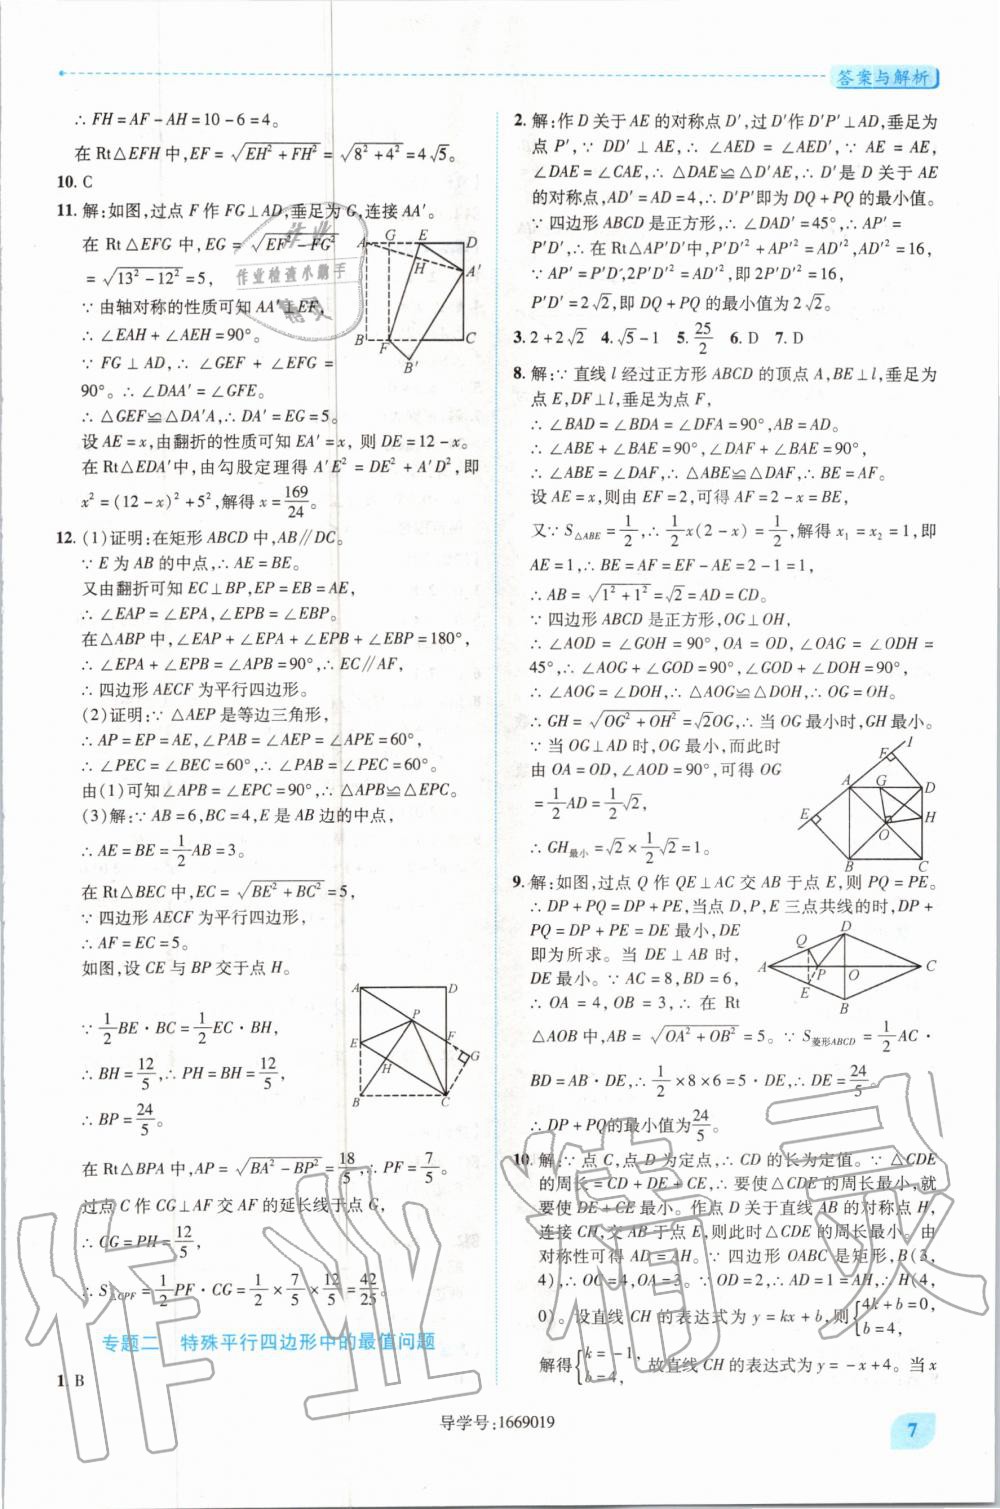 答案与解析
∴ FH=AF-AH=10-6=4。
在 Rt△EFH 中,EF=√(EH²+FH²)=√(8²+4²)=4√5。
10. C
11. 解:如图,过点 F 作 FG⊥AD,垂足为 G,连接 AA′。
在 Rt△EFG 中,EG=√(EF²-FG²)
=√(13²-12²)=5,
∵ 由轴对称的性质可知 AA′⊥EF,
∴ ∠EAH+∠AEH=90°。
∵ FG⊥AD,∴ ∠GEF+∠EFG=
90°。∴ ∠DAA′=∠GFE。
∴ △GEF≌△DA′A,∴ DA′=EG=5。
设 AE=x,由翻折的性质可知 EA′=x,则 DE=12-x。
在 Rt△EDA′中,由勾股定理得 A′E²=DE²+A′D²,即
x²=(12-x)²+5²,解得 x=169/24。
A G E D H A′ B F C B′
12. (1)证明:在矩形 ABCD 中,AB∥DC。
∵ E 为 AB 的中点,∴ AE=BE。
又由翻折可知 EC⊥BP,EP=EB=AE,
∴ ∠EAP=∠EPA,∠EPB=∠EBP。
在△ABP 中,∠EAP+∠EPA+∠EPB+∠EBP=180°,
∴ ∠EPA+∠EPB=∠APB=90°,∴ EC∥AF,
∴ 四边形 AECF 为平行四边形。
(2)证明:∵ △AEP 是等边三角形,
∴ AP=EP=AE,∠PAB=∠AEP=∠APE=60°,
∴ ∠PEC=∠BEC=60°,∴ ∠PAB=∠PEC=60°。
由(1)可知∠APB=∠EPC=90°,∴ △APB≌△EPC。
(3)解:∵ AB=6,BC=4,E 是 AB 边的中点,
∴ AE=BE=1/2AB=3。
在 Rt△BEC 中,EC=√(BE²+BC²)=5,
∵ 四边形 AECF 为平行四边形,
∴ AF=EC=5。
如图,设 CE 与 BP 交于点 H。
∵ 1/2BE·BC=1/2EC·BH,
∴ BH=12/5,∴ PH=BH=12/5。
∴ BP=24/5。
A D P E F G H B C
在 Rt△BPA 中,AP=√(BA²-BP²)=18/5,∴ PF=7/5。
过点 C 作 CG⊥AF 交 AF 的延长线于点 G,
∴ CG=PH=12/5,
∴ S△CPF=1/2PF·CG=1/2×7/5×12/5=42/25。
专题二 特殊平行四边形中的最值问题
1. B
2. 解:作 D 关于 AE 的对称点 D′,过 D′作 D′P′⊥AD,垂足为
点 P′,∵ DD′⊥AE,∴ ∠AED=∠AED′,∵ AE=AE,
∠DAE=∠CAE,∴ △DAE≌△D′AE,∴ D′是 D 关于 AE
的对称点,AD′=AD=4,∴ D′P′即为 DQ+PQ 的最小值。
∵ 四边形 ABCD 是正方形,∴ ∠DAD′=45°,∴ AP′=
P′D′,∴ 在 Rt△AP′D′中,P′D′²+AP′²=AD′²,AD′²=16,
∵ AP′=P′D′,2P′D′²=AD′²,即 2P′D′²=16,
P′D′=2√2,即 DQ+PQ 的最小值为 2√2。
3. 2+2√2 4. √5-1 5. 25/2 6. D 7. D
8. 解:∵ 直线 l 经过正方形 ABCD 的顶点 A,BE⊥l,垂足为
点 E,DF⊥l,垂足为点 F,
∴ ∠BAD=∠BDA=∠DFA=90°,AB=AD。
∴ ∠ABE+∠BAE=90°,∠DAF+∠BAE=90°,
∴ ∠ABE=∠DAF,∴ △ABE≌△DAF,∴ BE=AF。
设 AE=x,则由 EF=2,可得 AF=2-x=BE,
又∵ S△ABE=1/2,∴ 1/2x(2-x)=1/2,解得 x₁=x₂=1,即
AE=1,∴ BE=AF=EF-AE=2-1=1,
∴ AB=√(1²+1²)=√2=AD=CD。
∵ 四边形 ABCD 是正方形,OG⊥OH,
∴ ∠AOD=∠GOH=90°,OA=OD,∠OAG=∠ODH=
45°,∴ ∠AOG+∠GOD=90°,∠GOD+∠DOH=90°,
∴ ∠AOG=∠DOH,∴ △AOG≌△DOH,∴ OG=OH。
∴ GH=√(OG²+OH²)=√2OG,∴ 当 OG 最小时,GH 最小。
∵ 当 OG⊥AD 时,OG 最小,而此时
由 OA=OD,∠AOD=90°,可得 OG
=1/2AD=1/2√2,
∴ GH最小=√2×1/2√2=1。
l F A G D E H O B C
9. 解:如图,过点 Q 作 QE⊥AC 交 AB 于点 E,则 PQ=PE。
∴ DP+PQ=DP+PE,当点 D,P,E 三点共线的时,DP+
PQ=DP+PE=DE 最小,DE
即为所求。当 DE⊥AB 时,
DE 最小。∵ AC=8,BD=6,
∴ OA=4,OB=3,∴ 在 Rt
△AOB 中,AB=√(OA²+OB²)=5。∵ S菱形ABCD=1/2AC·
BD=AB·DE,∴ 1/2×8×6=5·DE,∴ DE=24/5。
∴ DP+PQ的最小值为24/5。
D Q A P O C E B
10. 解:∵ 点 C,点 D 为定点,∴ CD 的长为定值。∵ △CDE
的周长=CD+DE+CE,∴ 要使△CDE 的周长最小,就
要使 DE+CE 最小。作点 D 关于直线 AB 的对称点 H,
连接 CH,交 AB 于点 E,则此时△CDE 的周长最小。由
对称性可得 AD=AH。∵ 四边形 OABC 是矩形,B(3,
4),∴ OC=4,OA=3。∵ OD=2,∴ AD=1=AH,∴ H(4,
0)。设直线 CH 的表达式为 y=kx+b,则{4k+b=0, b=4,
解得{k=-1, b=4,故直线 CH 的表达式为 y=-x+4。当 x
导学号:1669019
7
作业
作业检查小助手
精灵
作业精灵